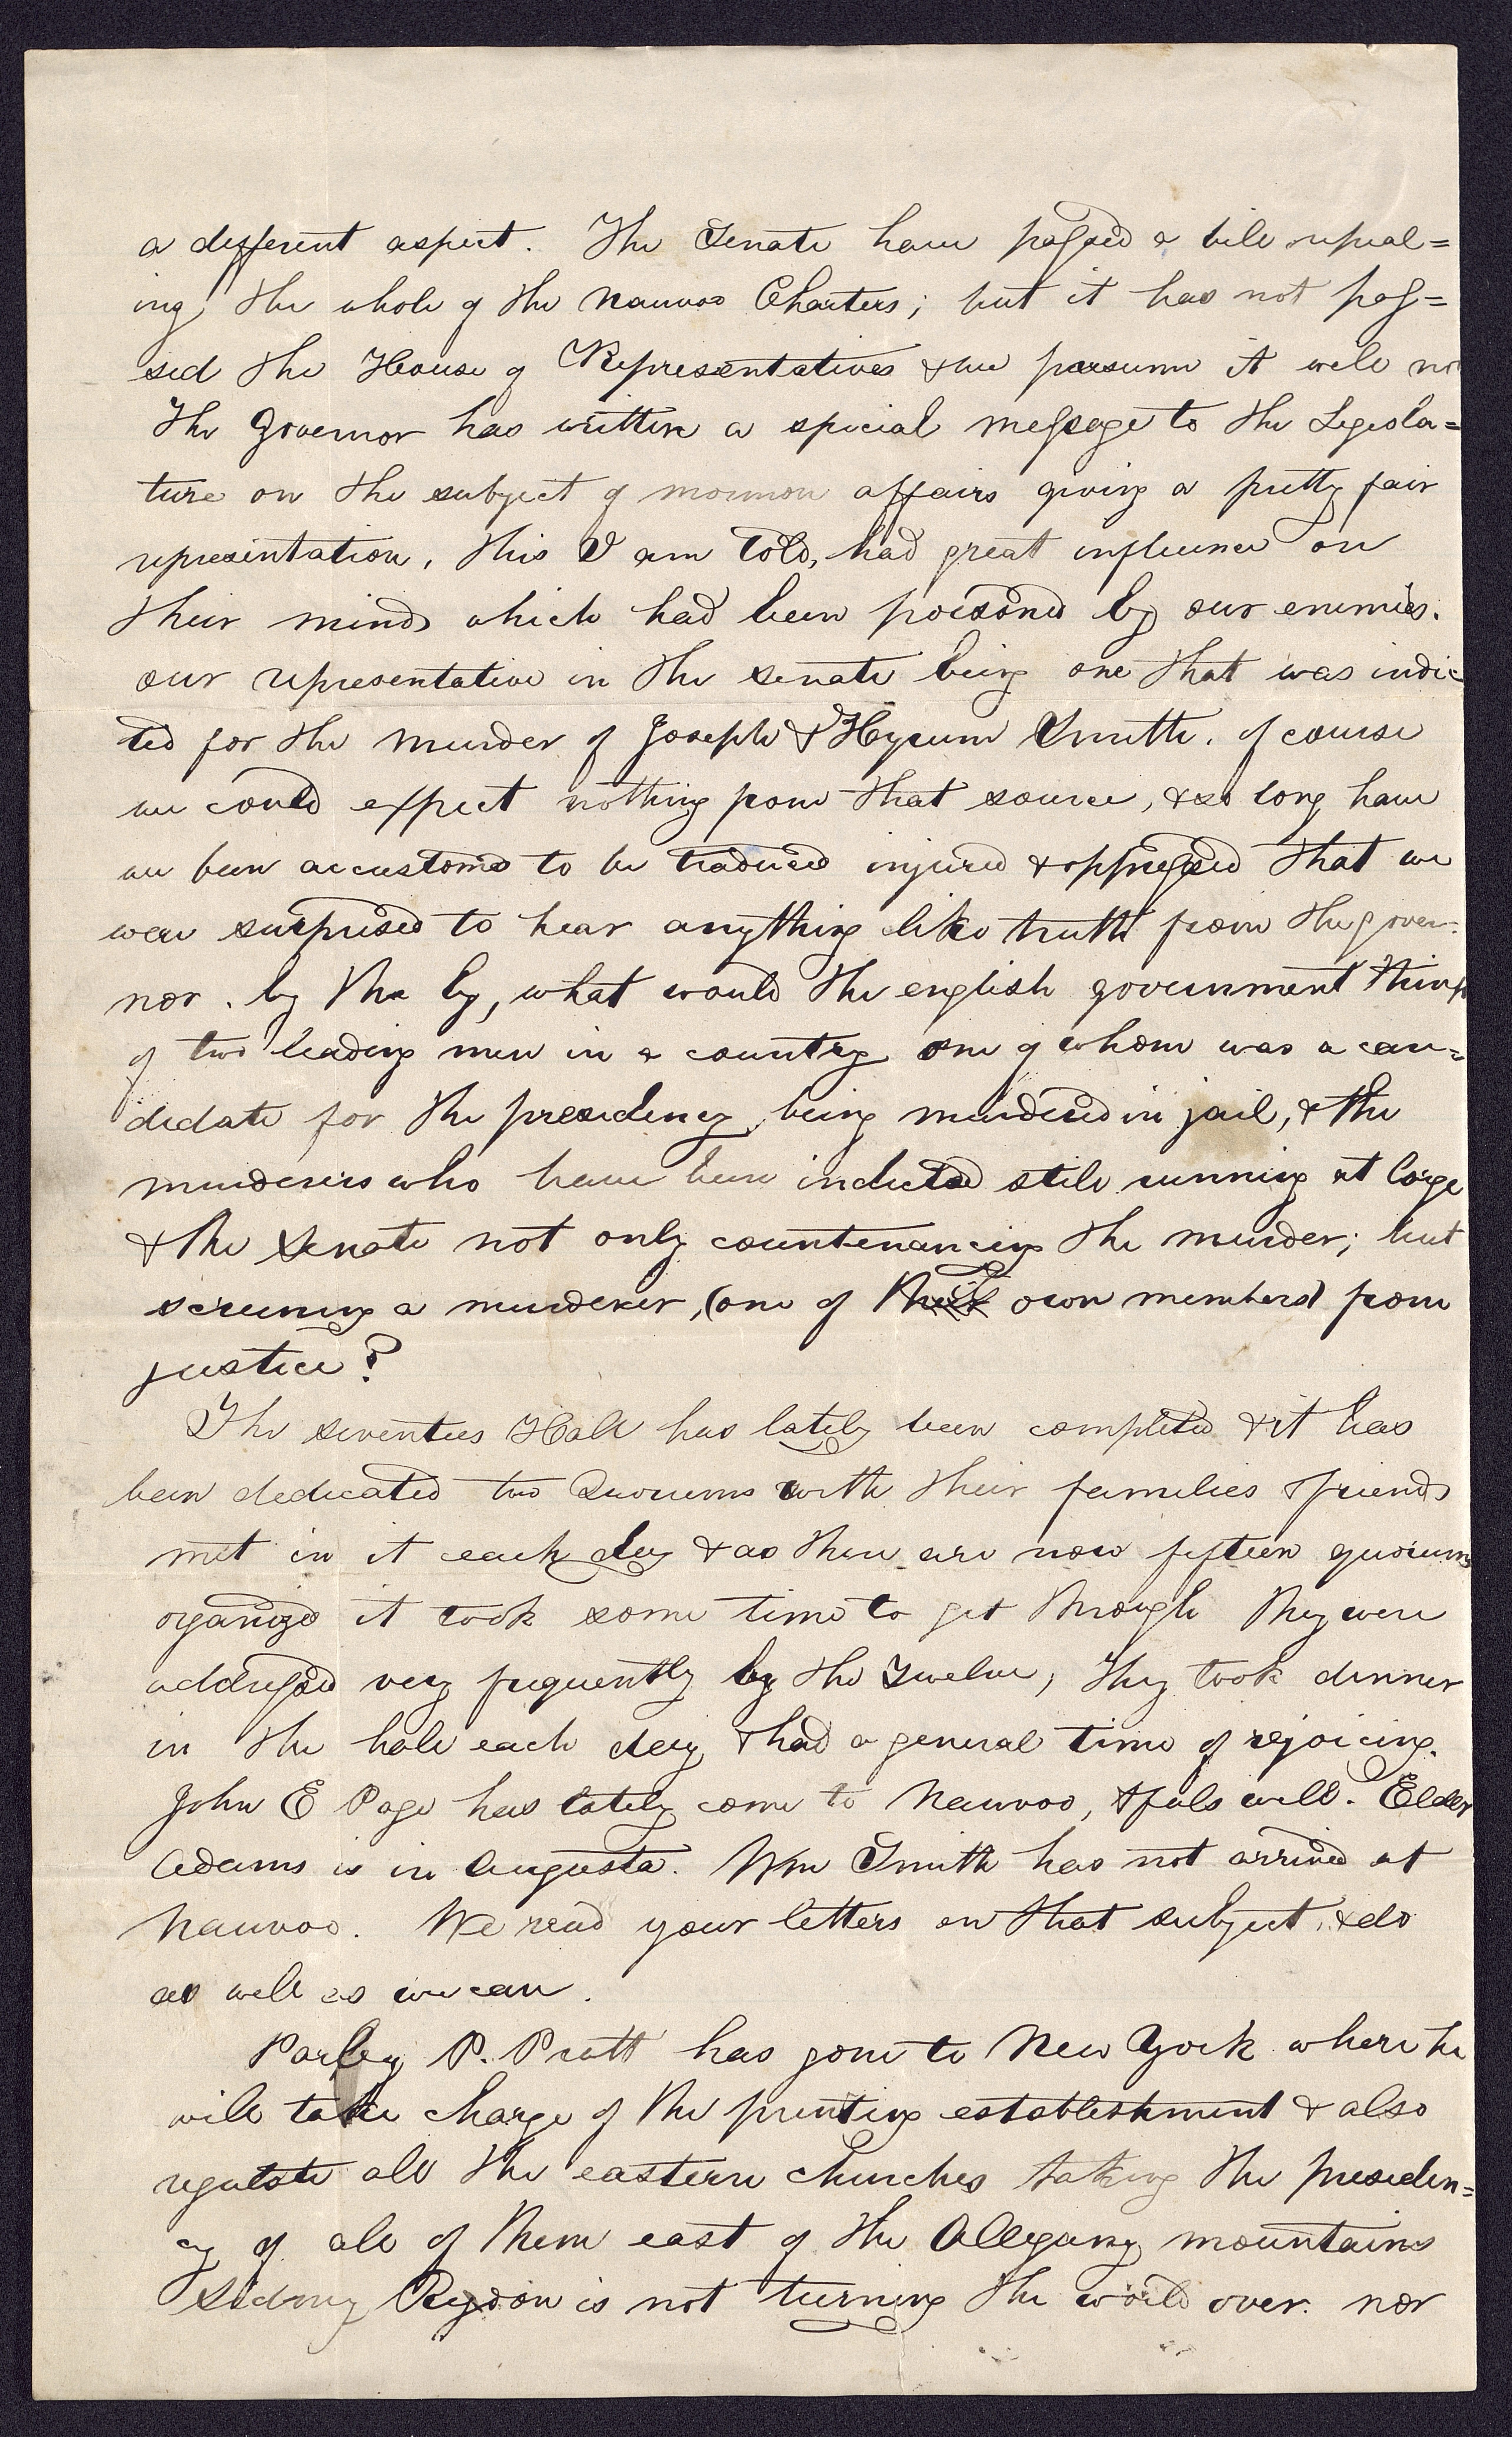 a different aspect. The Senate have passed a bill repeal=
ing the whole of the Nauvoo Charters; but it has not pas=
sed the House of Representatives & we presume it will no
The Governor has written a special message to the Legisla=
ture on the subject of mormon affairs giving a pretty fair
representation, this I am told, had great influence on
their minds which had been poisoned by our enemies.
our representative in the senate being one that was indic
ted for the murder of Joseph & Hyrum Smith. of course
we could expect nothing from that source, & so long have
we been accustomed to be traduced injured & oppressed that we
were surprised to hear anything like truth from the gover-
nor. by the by, what would the english government think
of two leading men in a country one of whom was a can=
didate for the presidency being murdered in jail, & the
murderers who have been indicted still running at large
& the Senate not only countenancing the murder; but
screening a murderer, (one of their own members) from
justice?
The seventies Hall has lately been completed & it has
been dedicated two Quorums with their families & friends
met in it each day & as there are now fifteen quorums
organized it took some time to get through They were
addressed very frequently by the Twelve, they took dinner
in the hall each day & had a general time of rejoicing.
John E Page has lately come to Nauvoo, & feels well. Elder
Adams is in Augusta. Wm Smith has not arrived at
Nauvoo. We read your letters on that subject, & do
as well as we can.
Parley P. Pratt has gone to New York where he
will take charge of the printing establishment & also
regulate all the eastern churches taking the presiden=
cy of all of them east of the Allegany mountains
Sidney Rigdon is not turning the world over. nor